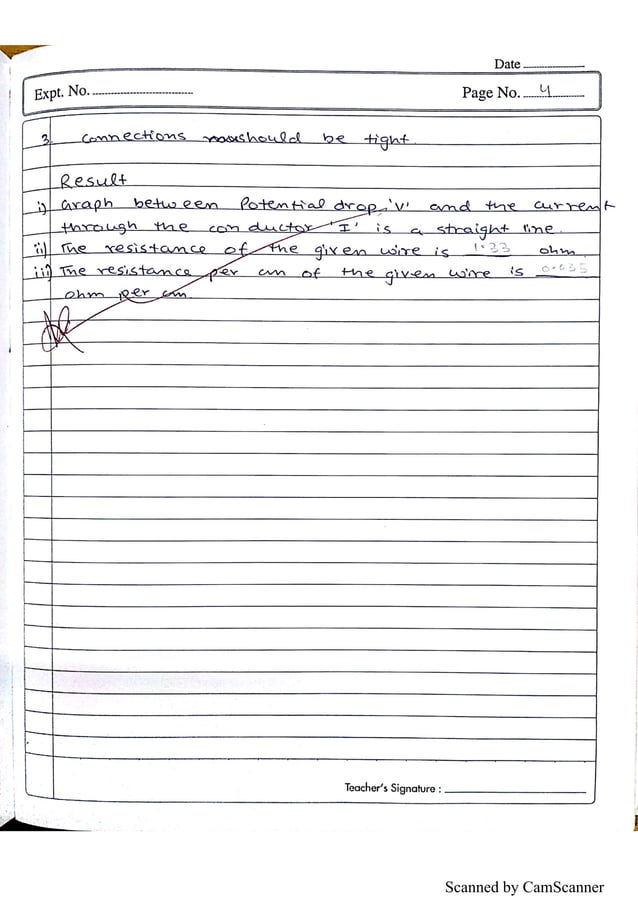 Date
Expt. No. Page No. 4
3. Connections should be tight.
Result
i) Graph between Potential drop 'V' and the current
through the conductor 'I' is a straight line.
ii) The resistance of the given wire is 1.33 ohm.
iii) The resistance per cm of the given wire is 0.035
ohm per cm.
Teacher's Signature :
Scanned by CamScanner